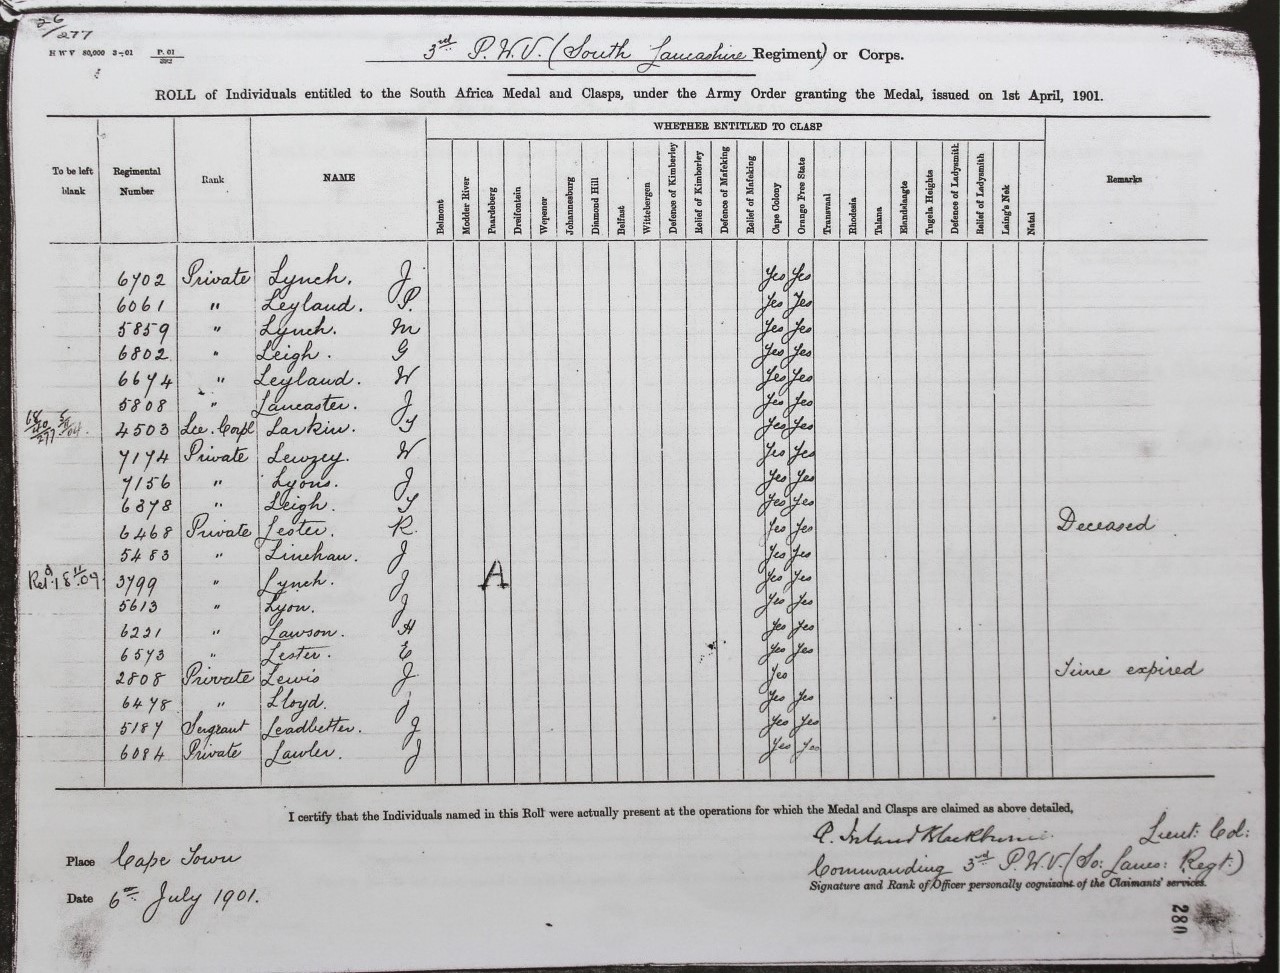 26/277
H W V 80,000 3–01 P. 01/392
3rd P.W.V. (South Lancashire Regiment) or Corps.
ROLL of Individuals entitled to the South Africa Medal and Clasps, under the Army Order granting the Medal, issued on 1st April, 1901.
WHETHER ENTITLED TO CLASP
To be left blank Regimental Number Rank NAME Belmont Modder River Paardeberg Dreifontein Wepener Johannesburg Diamond Hill Belfast Wittebergen Defence of Kimberley Relief of Kimberley Defence of Mafeking Relief of Mafeking Cape Colony Orange Free State Transvaal Rhodesia Talana Elandslaagte Tugela Heights Defence of Ladysmith Relief of Ladysmith Laing's Nek Natal Remarks
6702 Private Lynch. J Yes Yes
6061 " Leyland. P. Yes Yes
5859 " Lynch. M Yes Yes
6802 " Leigh. G Yes Yes
6674 " Leyland. W Yes Yes
5808 " Lancaster. J Yes Yes
4503 Lce. Corpl Larkin. T Yes Yes
7174 Private Lewzey. W Yes Yes
7156 " Lyons. J Yes Yes
6378 " Leigh. T Yes Yes
6468 Private Lester. R. Yes Yes Deceased
5483 " Linehan. J Yes Yes
Retd 18 11 09 3799 " Lynch. J A Yes Yes
5613 " Lyon. J Yes Yes
6221 " Lawson. H Yes Yes
6573 " Lester. E Yes Yes
2808 Private Lewis J Yes Time expired
6478 " Lloyd. J Yes Yes
5187 Sergeant Leadbetter. J Yes Yes
6084 Private Lawler. J Yes Yes
I certify that the Individuals named in this Roll were actually present at the operations for which the Medal and Clasps are claimed as above detailed,
Ireland Blackburne. Lieut: Col:
Place Cape Town
Commanding 3rd P.W.V. (So: Lancs: Regt.)
Signature and Rank of Officer personally cognizant of the Claimants' services.
Date 6th July 1901.
280